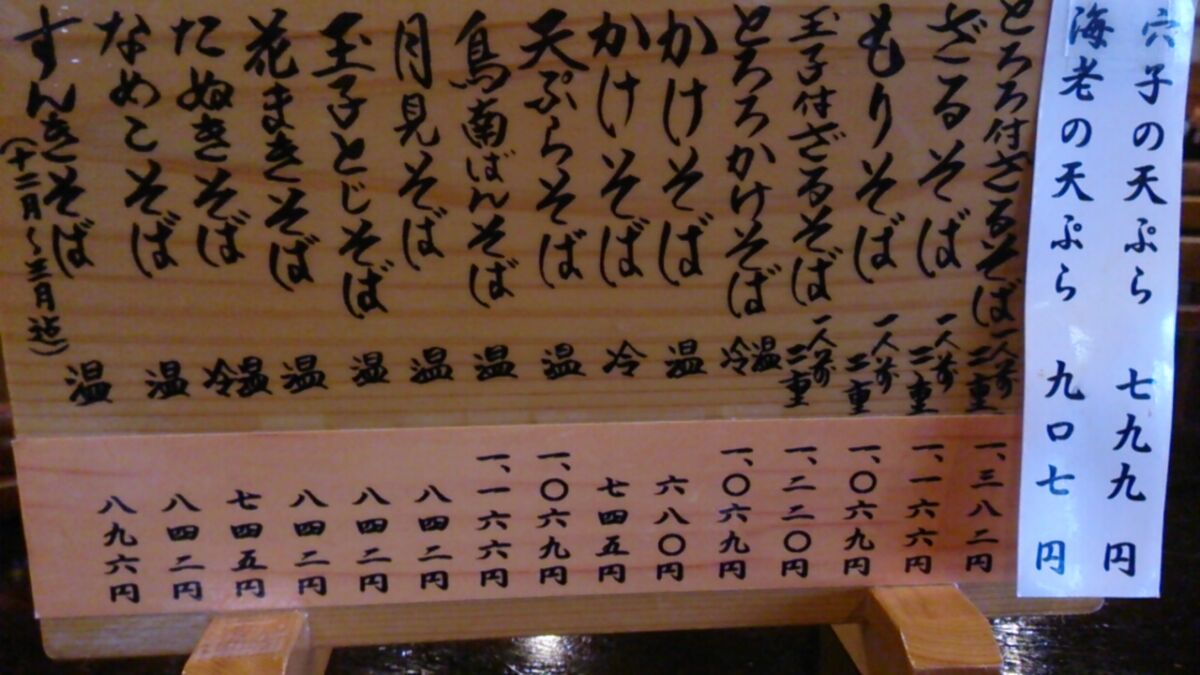 穴子の天ぷら 七九九円
海老の天ぷら 九〇七円
とろろ付ざるそば 一人前二重 一、三八二円
ざるそば 一人前二重 一、一六六円
もりそば 一人前二重 一、〇六九円
玉子付ざるそば 一人前二重 一、二二〇円
とろろかけそば 温冷 一、〇六九円
かけそば 温 六八〇円
かけそば 冷 七四五円
天ぷらそば 温 一、〇六九円
鳥南ばんそば 温 一、一六六円
月見そば 温 八四二円
玉子とじそば 温 八四二円
花まきそば 温 八四二円
たぬきそば 温冷 七四五円
なめこそば 温 八四二円
すんきそば 温 八九六円
(十二月〜三月迄)